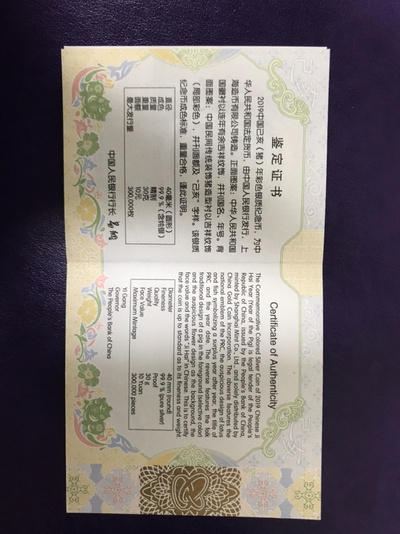 鉴定证书
2019中国己亥(猪)年彩色银质纪念币,为中
华人民共和国法定货币,由中国人民银行发行,上
海造币有限公司铸造。正面图案:中华人民共和国
国徽衬以连年有余吉祥纹饰,并刊国名、年号。背
面图案:中国民间传统装饰猪造型衬以吉祥纹饰
(局部彩色),并刊面额及“己亥”字样。该银质
纪念币成色标准,重量合格,谨此证明。
直径 40毫米(圆形)
成色 99.9%(含纯银)
质量 精制
重量 30克
面额 10元
最大发行量 300,000枚
中国人民银行行长
Certificate of Authenticity
The Commemorative Colored Silver Coin of 2019 Chinese Ji
Hai Year (Year of the Pig) is legal tender of the People's
Republic of China, issued by the People's Bank of China,
minted by Shanghai Mint Co., Ltd., and solely distributed by
China Gold Coin Incorporation. The obverse features the
national emblem of the PRC, the auspicious design of lotus
and fish symbolizing a surplus year after year, the title of
PRC and the year date. The reverse features the folk
traditional design of a pig in the foreground (selective color)
and the auspicious flower design as the background, the
face value and the words "Ji Hai" in Chinese. This is to certify
that the coin is up to standard as to its fineness and weight.
Diameter 40 mm (round)
Fineness 99.9 % (pure silver)
Quality Proof
Weight 30 g
Face Value 10 Yuan
Maximum Mintage 300,000 pieces
Yi Gang
Governor
The People's Bank of China